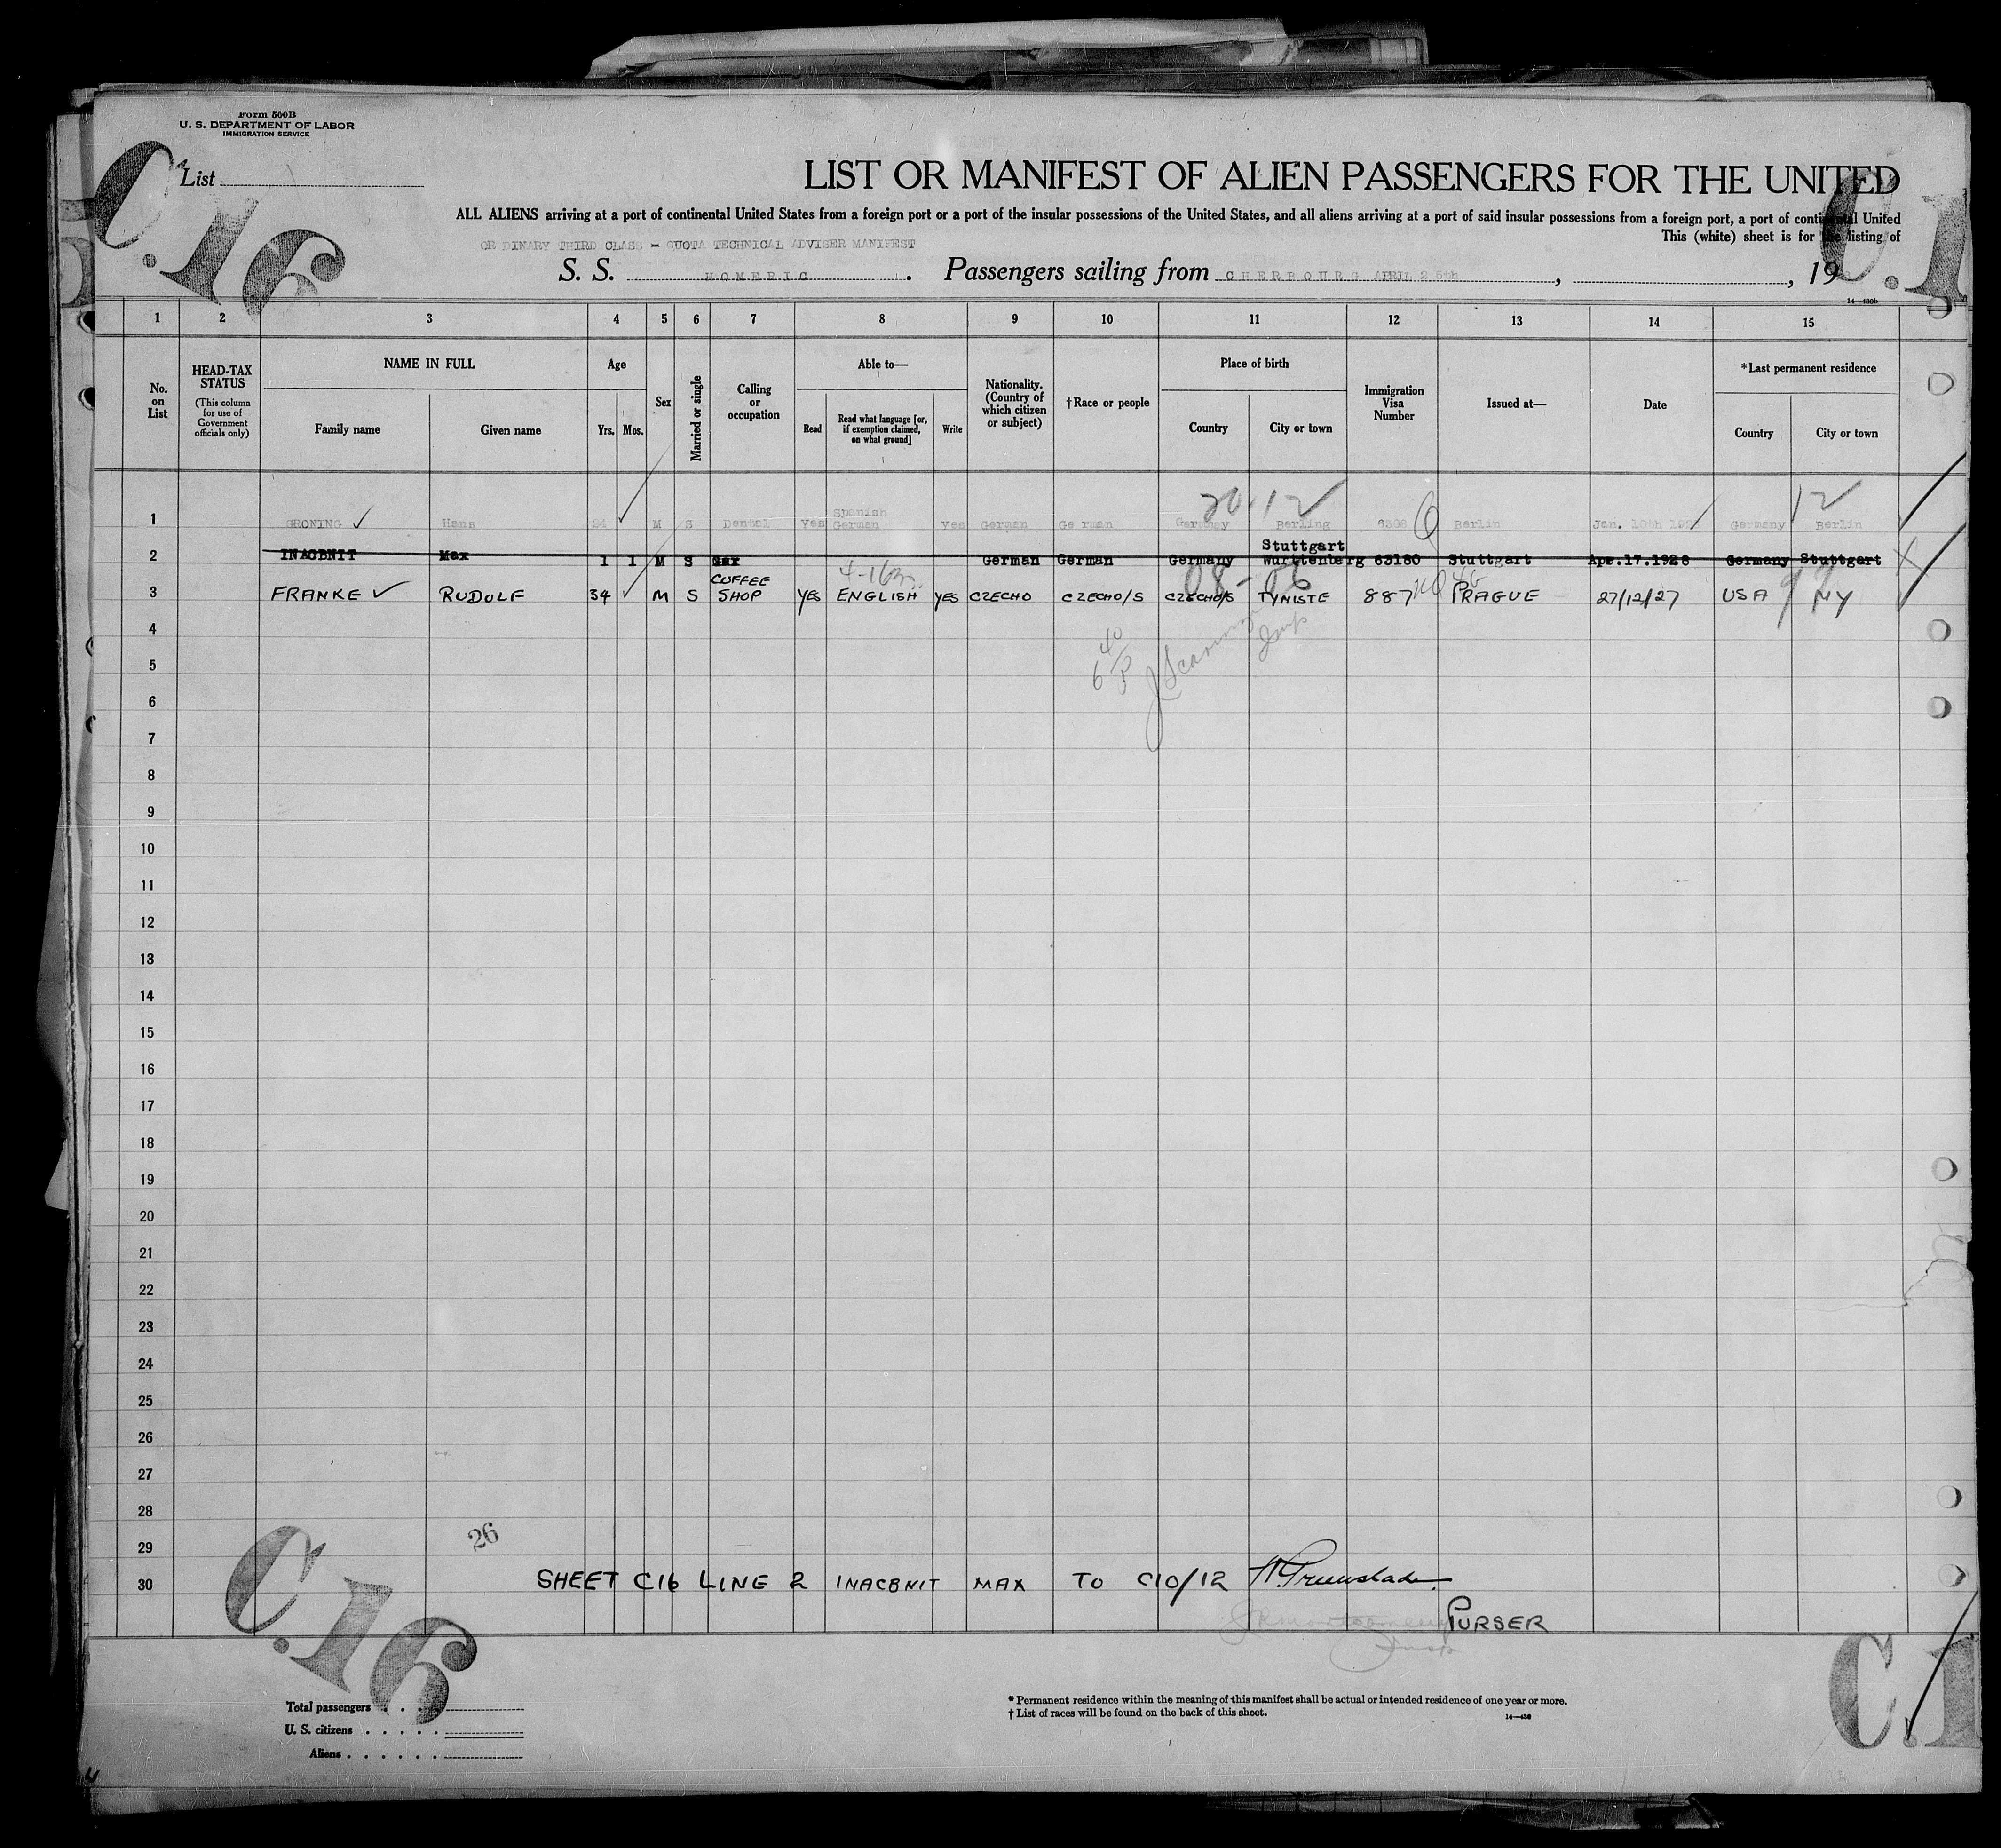 Form 500B
U. S. DEPARTMENT OF LABOR
IMMIGRATION SERVICE
C.16
List
LIST OR MANIFEST OF ALIEN PASSENGERS FOR THE UNITED
ALL ALIENS arriving at a port of continental United States from a foreign port or a port of the insular possessions of the United States, and all aliens arriving at a port of said insular possessions from a foreign port, a port of continental United
This (white) sheet is for the listing of
OR DINARY THIRD CLASS - QUOTA TECHNICAL ADVISER MANIFEST
S. S. HOMERIC. Passengers sailing from CHERBOURG APRIL 25th, , 19
C.1
14—430b
1 2 3 4 5 6 7 8 9 10 11 12 13 14 15
No. on List
HEAD-TAX STATUS
(This column for use of Government officials only)
NAME IN FULL
Family name Given name
Age
Yrs. Mos.
Sex
Married or single
Calling or occupation
Able to—
Read
Read what language [or, if exemption claimed, on what ground]
Write
Nationality. (Country of which citizen or subject)
†Race or people
Place of birth
Country City or town
Immigration Visa Number
Issued at—
Date
*Last permanent residence
Country City or town
20 12 12
1 GRONING ✓ Hans 24 M S Dental yes Spanish German yes German Ge rman Germany Berling 6308 Berlin Jan. 10th Germany Berlin
2 INAEBNIT Max 1 1 M S German German Germany Stuttgart Wurttenberg 63180 Stuttgart Apr.17.1928 Germany Stuttgart
3 FRANKE ✓ RUDOLF 34 M S COFFEE SHOP YES ENGLISH YES CZECHO CZECHO/S CZECHO/S TYNISTE 887 PRAGUE 27/12/27 USA NY
4
5
6
7
8
9
10
11
12
13
14
15
16
17
18
19
20
21
22
23
24
25
26
27
28
29
30
26
SHEET C16 LINE 2 INAEBNIT MAX TO C10/12
PURSER
C.16
C.1
Total passengers
U. S. citizens
Aliens
* Permanent residence within the meaning of this manifest shall be actual or intended residence of one year or more.
† List of races will be found on the back of this sheet.
14—430